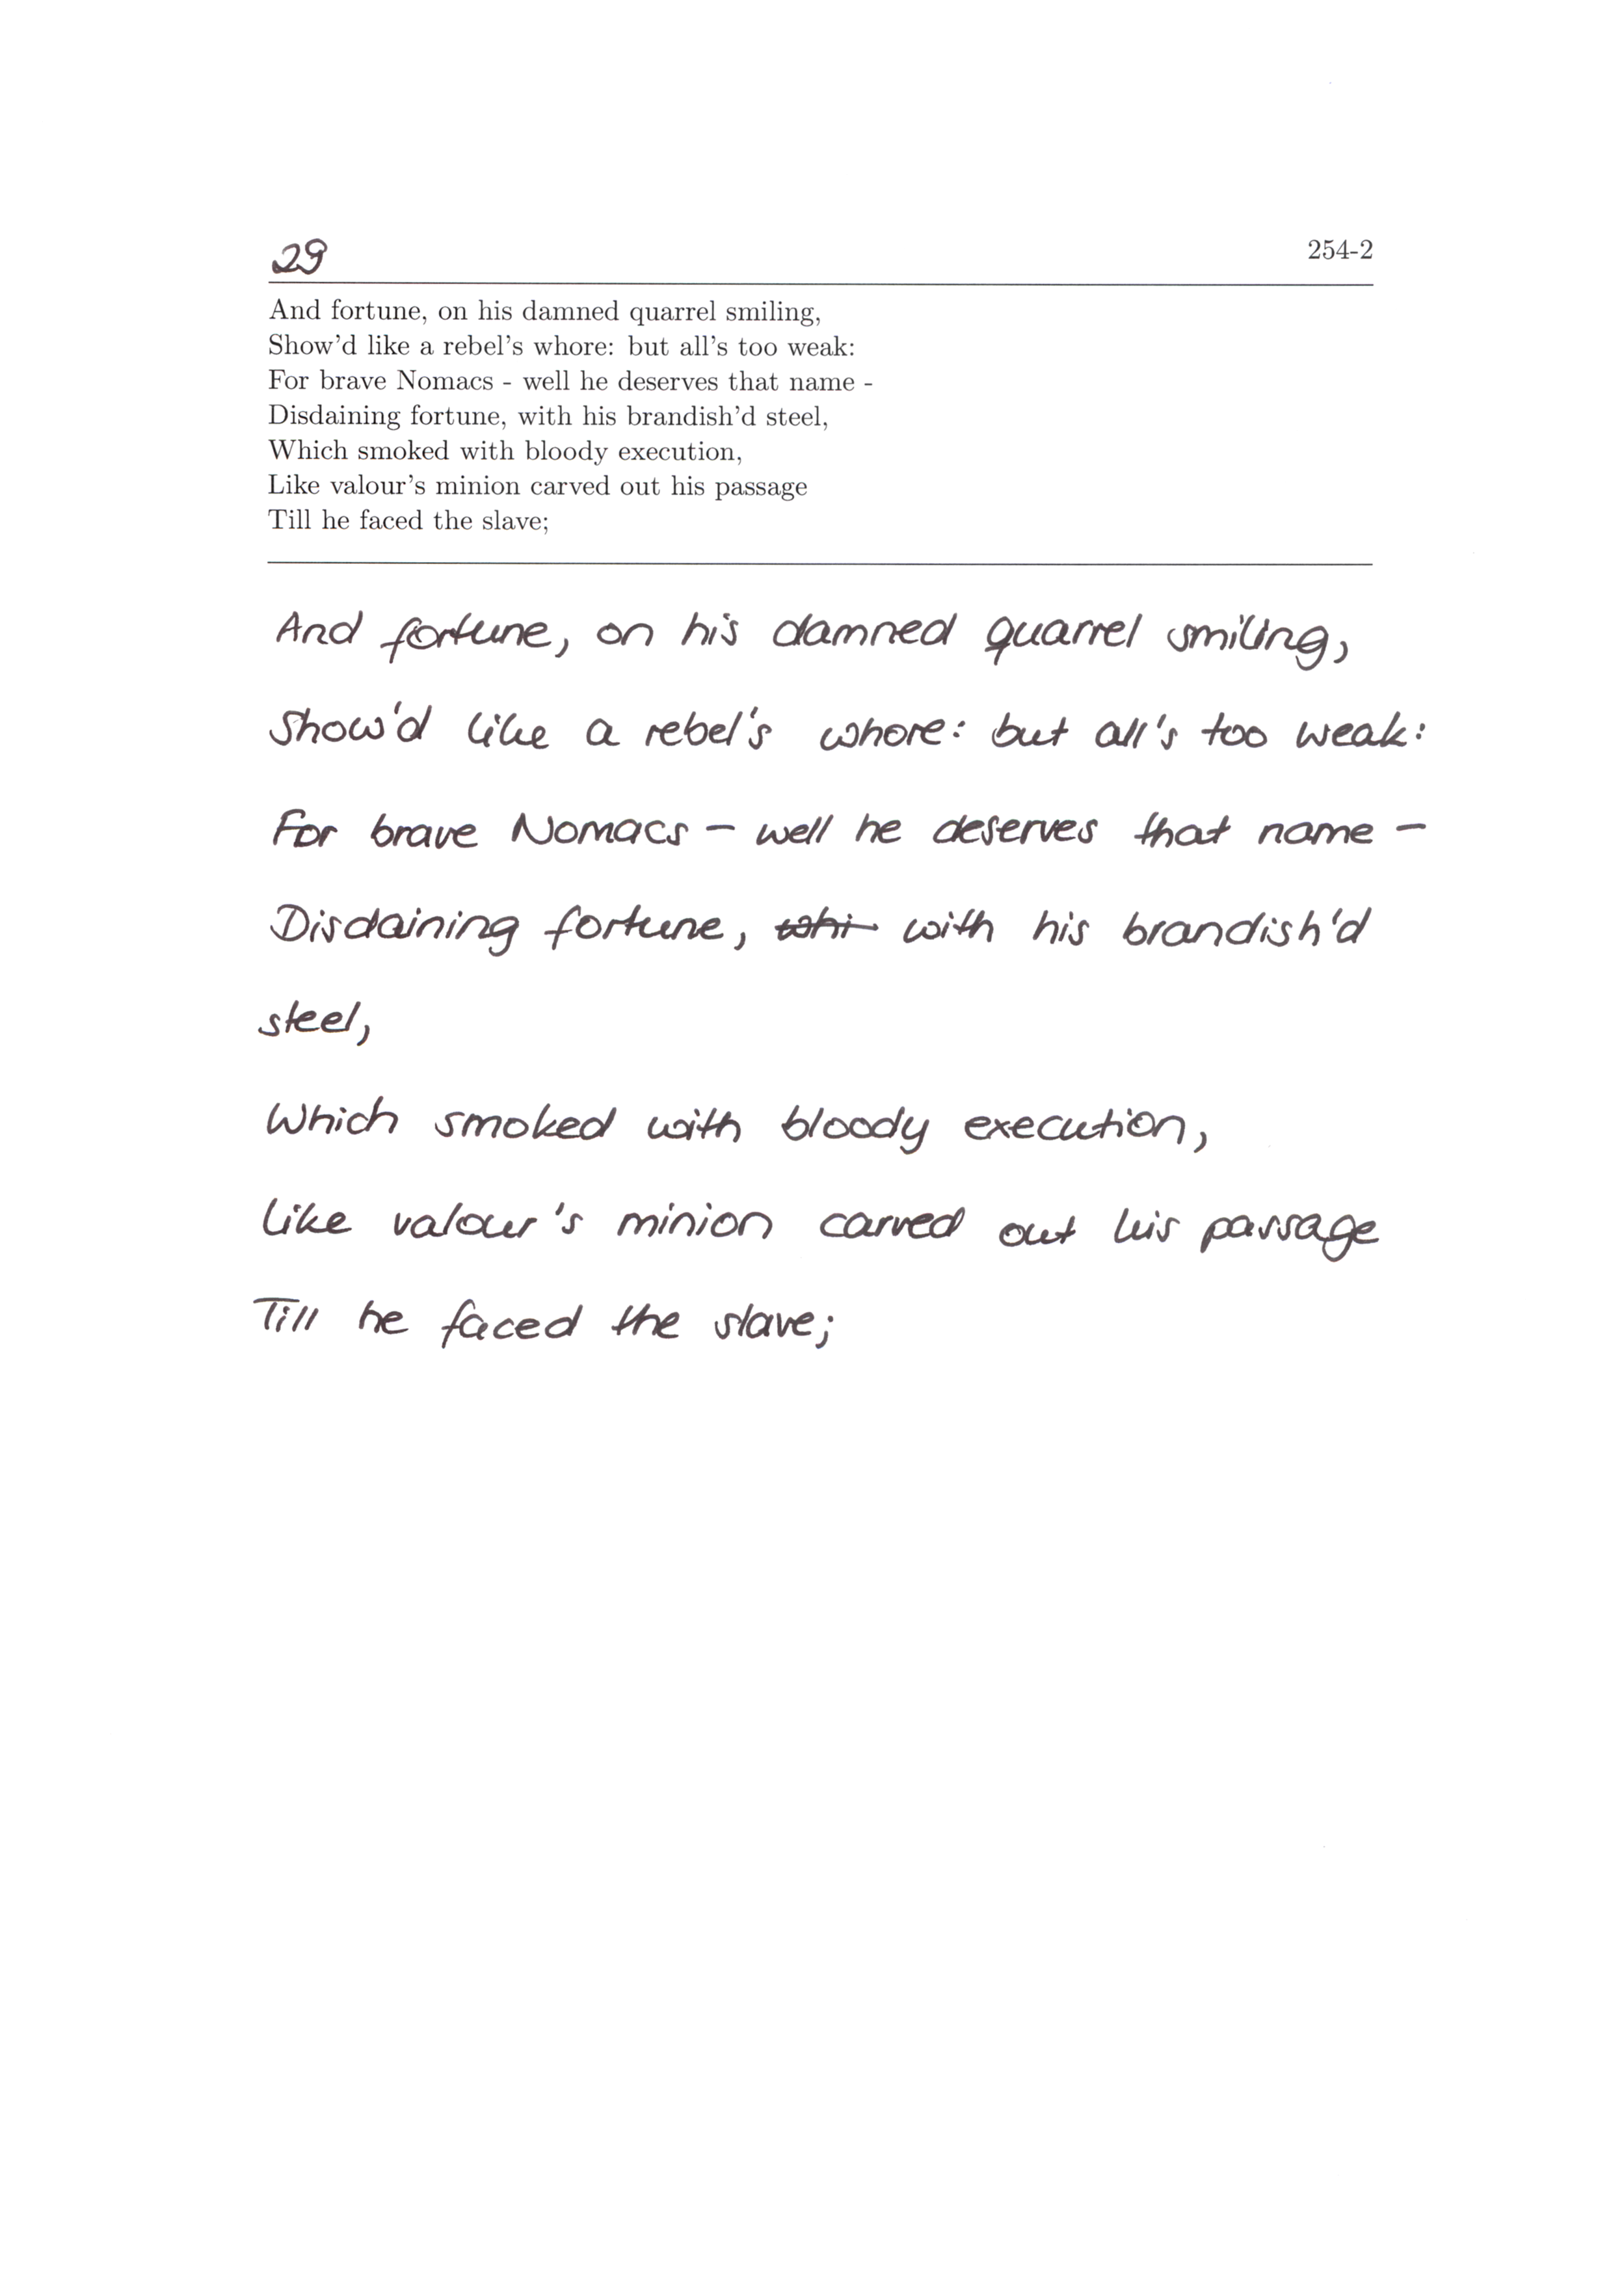 29 254-2
And fortune, on his damned quarrel smiling,
Show'd like a rebel's whore: but all's too weak:
For brave Nomacs - well he deserves that name -
Disdaining fortune, with his brandish'd steel,
Which smoked with bloody execution,
Like valour's minion carved out his passage
Till he faced the slave;
And fortune, on his damned quarrel smiling,
Show'd like a rebel's whore: but all's too weak:
For brave Nomacs - well he deserves that name -
Disdaining fortune, whi with his brandish'd
steel,
Which smoked with bloody execution,
Like valour's minion carved out his passage
Till he faced the slave;